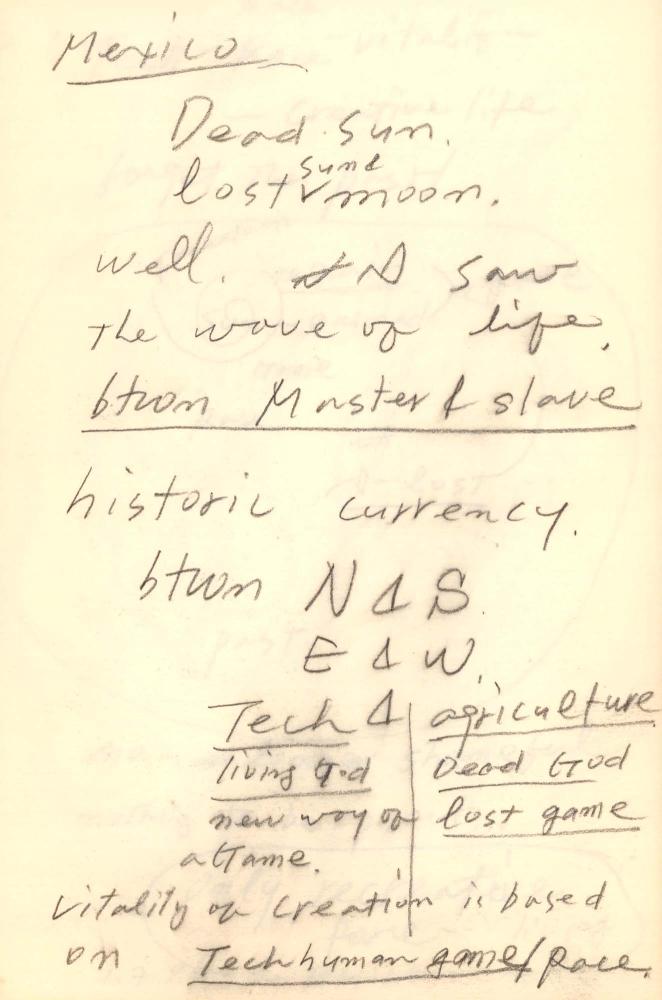 Mexico
Dead sun.
lost sun & moon.
well. saw
the wave of life,
btwn Master & slave
historic currency.
btwn N & S.
E & W.
Tech & | agriculture
living God | Dead God
new way of | lost game
a Game.
Vitality of creation is based
on Tech human game/pace.